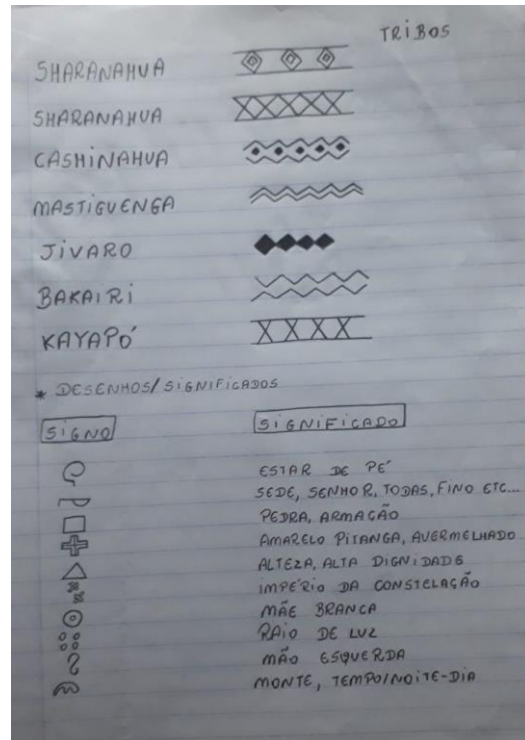 TRIBOS
SHARANAHUA
SHARANAHUA
CASHINAHUA
MASTIGUENGA
JIVARO
BAKAIRI
KAYAPÓ
* DESENHOS/SIGNIFICADOS
SIGNO SIGNIFICADO
ESTAR DE PÉ
SEDE, SENHOR, TODAS, FINO ETC...
PEDRA, ARMAÇÃO
AMARELO PITANGA, AVERMELHADO
ALTEZA, ALTA DIGNIDADE
IMPÉRIO DA CONSTELAÇÃO
MÃE BRANCA
RAIO DE LUZ
MÃO ESQUERDA
MONTE, TEMPO/NOITE-DIA